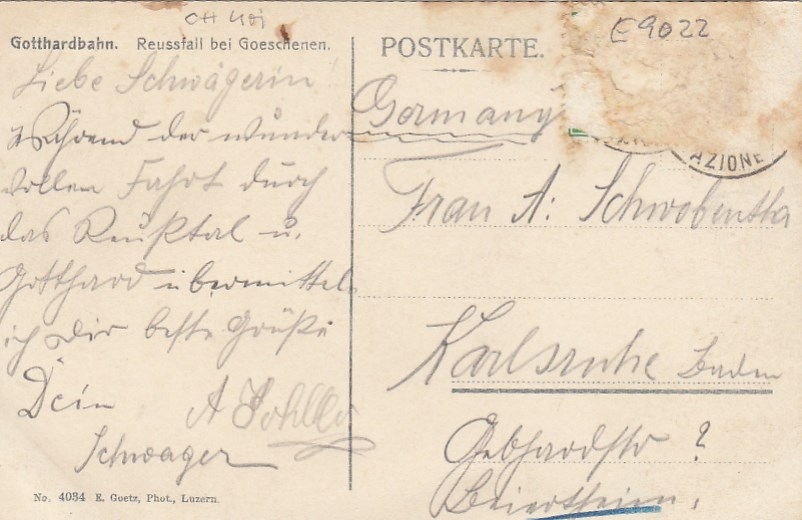 CH Uri
E9022
Gotthardbahn. Reussfall bei Goeschenen.
POSTKARTE.
AZIONE
Liebe Schwägerin!
Während der wunder
vollen Fahrt durch
das Reußtal u.
Gotthard übermittel
ich Dir beste Grüße
Dein
Schwager
A
Germany
Frau A: Schwobentha
Karlsruhe Baden
Gebhardstr ?
Beiertheim.
No. 4034 E. Goetz, Phot., Luzern.